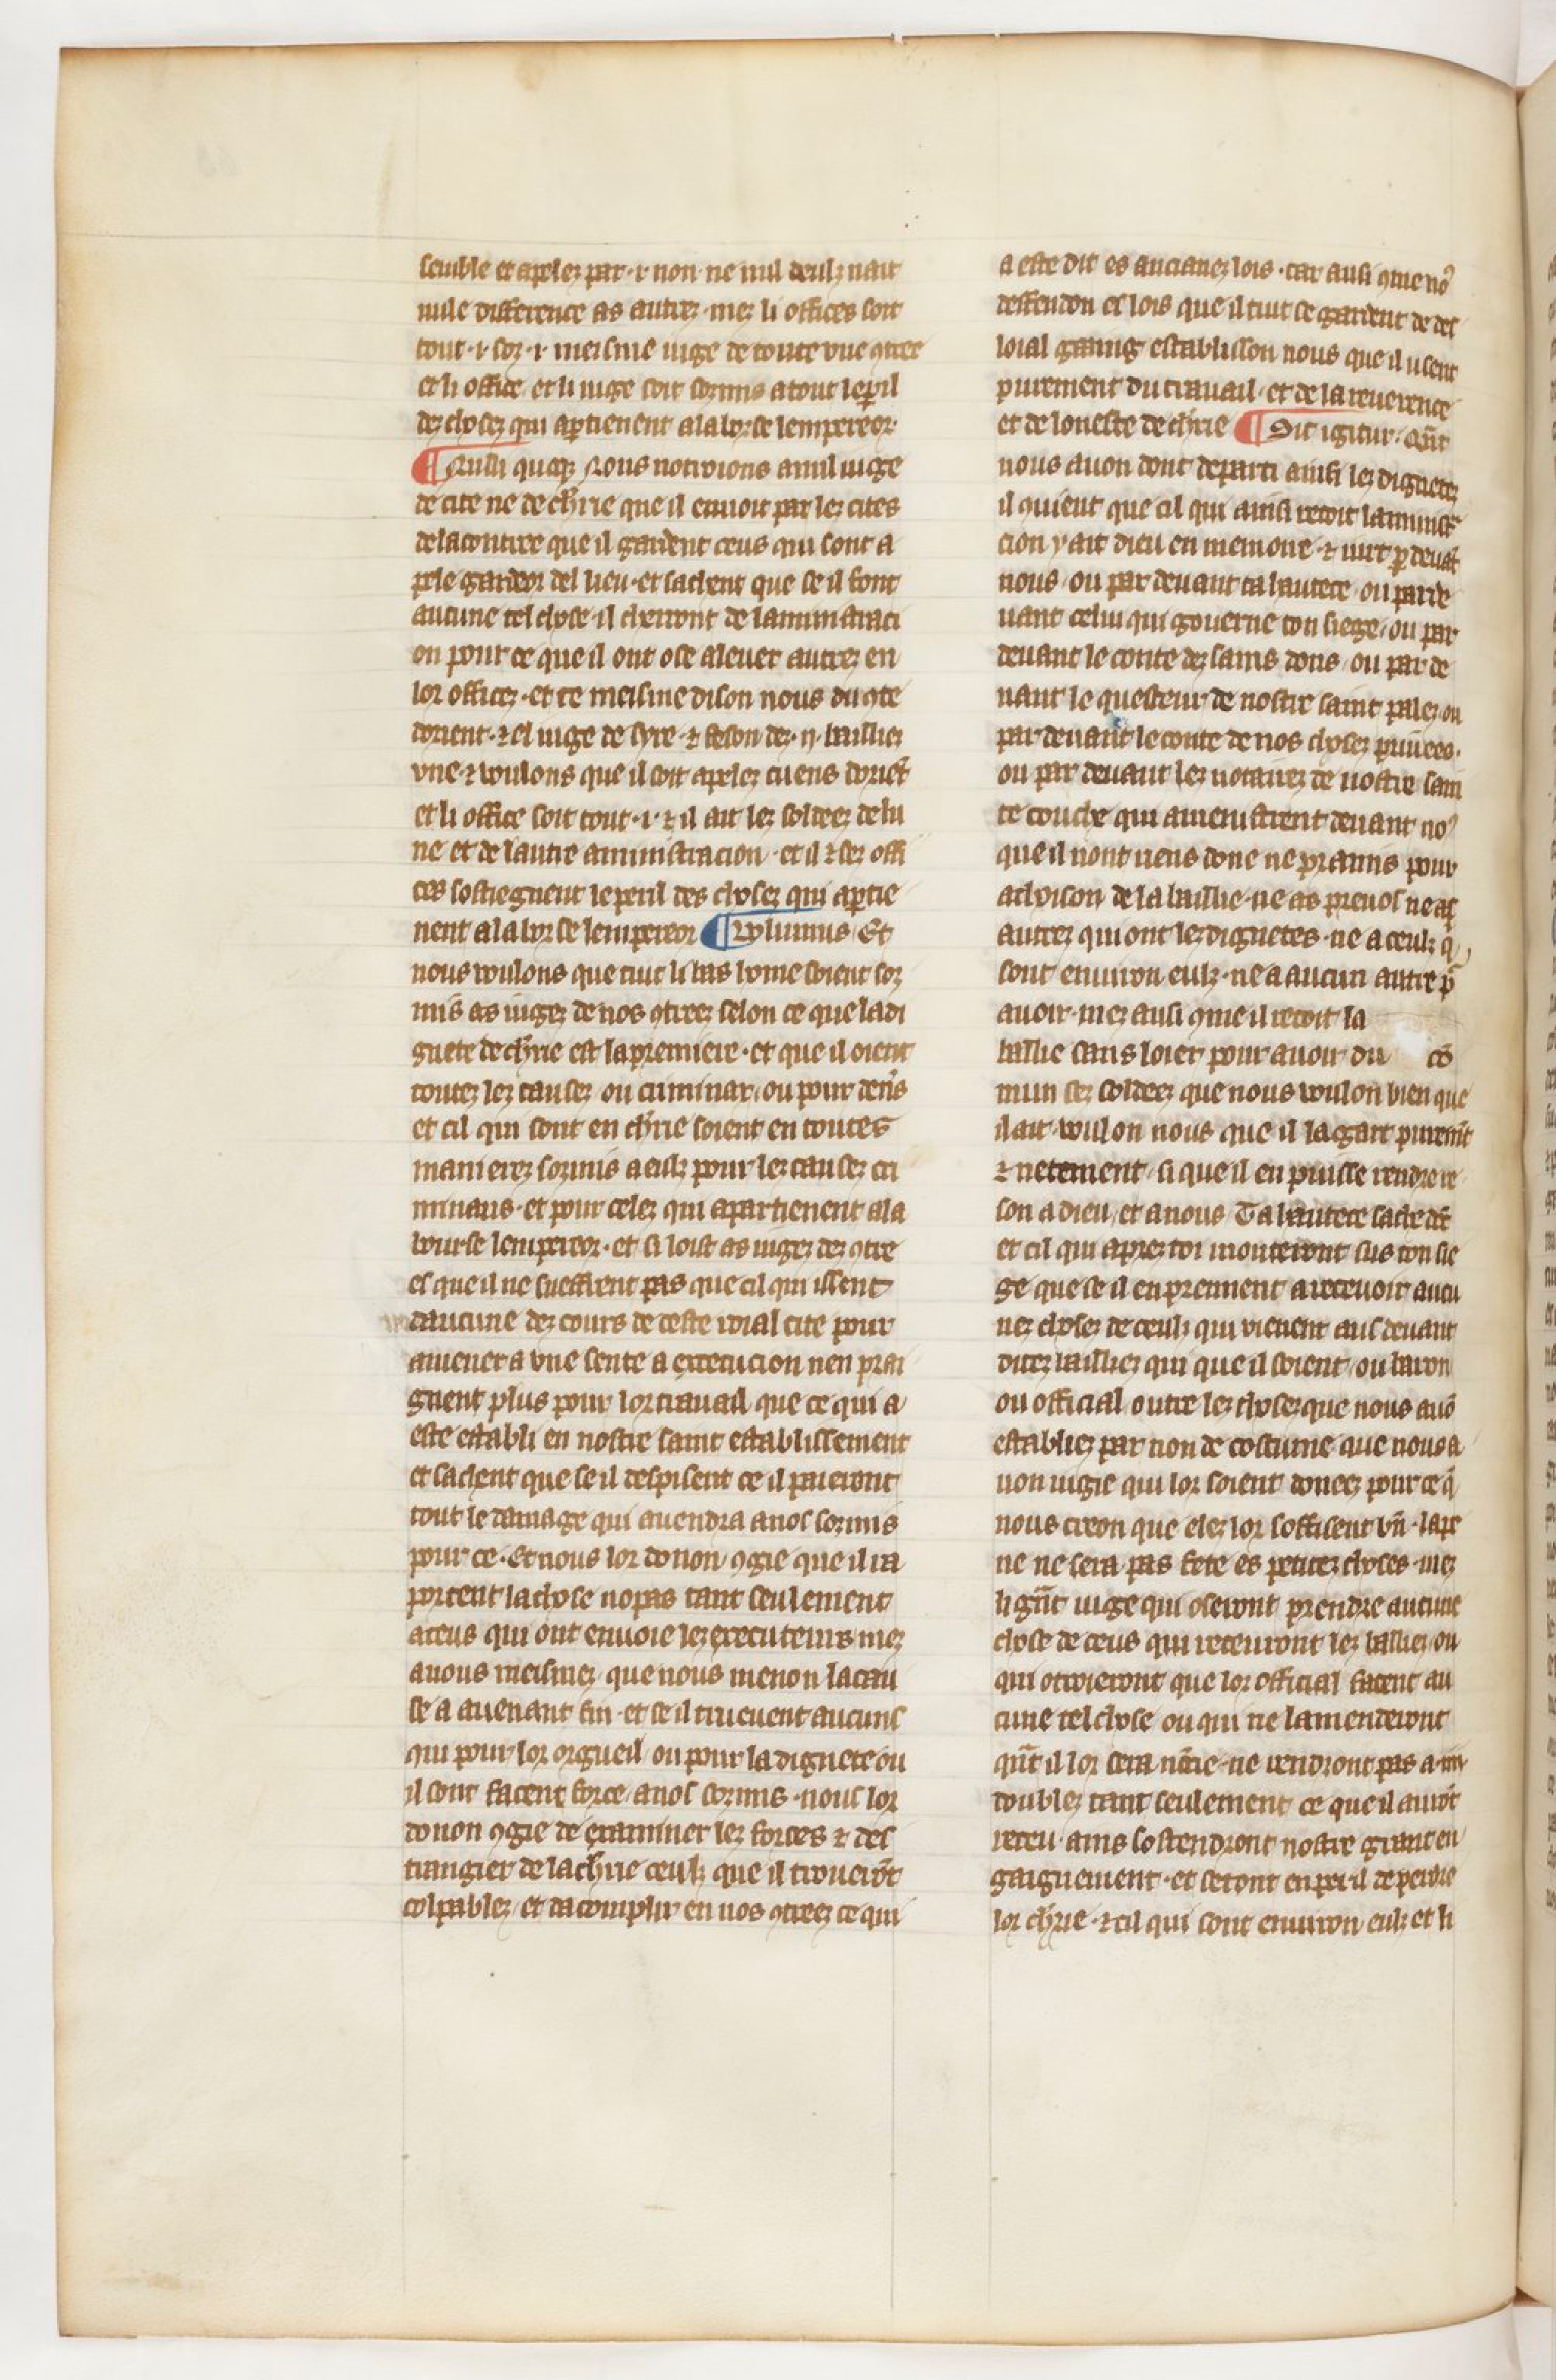 semble et apelez par .i. non ne nul deulz nait
nule difference as autrez mez li offices soit
tout .i. soz .i. meisme iuge de toute une 9tree
et li office et li iuge soit sozmis a tout le peril
dez chosez qui apartienent a la borse lempereor
¶ Nulli quoq; Nous notroions a nul iuge
de cite ne de chrie que il enuoit par lez cites
de la contree que il gardent ceus qui sont a
pele gardeor del lieu et sachent que se il font
aucune tel chose il cherront de laministraci
on pour ce que il ont ose aleuer autrez en
lor officez et ce meisme dison nous du 9te
dorient ⁊ el iuge de syre ⁊ feson dez .ii. baillies
vne ⁊ voulons que il soit apelez cuens dorient
et li office soit tout .i. ⁊ il ait lez soldeez de lu
ne et de lautre aministracion et il ⁊ sez offi
ces sostiegnent le peril des chosez qui apartie
nent a la borse lempereor ¶ Volumus Et
nous voulons que tuit li bas home soient soz
mis as iugez de nos 9treez selon ce que la di
gnete de chrie est la premiere et que il oient
toutez lez causez ou criminax ou pour deniers
et cil qui sont en chrie soient en toutes
manierez sozmis a eulz pour lez causez cri
minaus et pour celez qui apartienent a la
bourse lempereor et si loist as iugez dez 9tre
es que il ne sueffrent pas que cil qui issent
daucune dez cours de ceste roial cite pour
amener a vne sente a execucion nen prai
gnent plus pour lor trauail que ce qui a
este establi en nostre saint establissement
et sachent que se il despisent ce il paieront
tout le damage qui auendra a nos sozmis
pour ce Et nous lor donon 9gie que il ra
portent la chose no pas tant seulement
a ceus qui ont enuoie lez executeurs mez
a nous meismez que nous menon la cau
se a auenant fin et se il trueuent aucuns
qui pour lor orgueil ou pour la dignete ou
il sont facent force a nos sozmis nous lor
donon 9gie de examiner lez forces ⁊ des
trangier de la chrie ceulz que il troueront
colpablez et dacomplir en nos 9treez ce qui
a este dit es ancianez lois car ausi 9me no9
deffendon es lois que il tuit se gardent de des
loial gaaing establisson nous que il usent
purement du trauail et de la reuerence
et de loneste de chrie ¶ Sit igitur Quant
nous auon dont departi ainsi lez dignetez
il 9uient que cil qui ainsi recoit laministra
cion y ait dieu en memoire ⁊ iurt par deuant
nous ou par deuant ta hautece ou par de
uant celui qui gouerne ton siege ou par
deuant le conte dez sains dons ou par de
uant le questeur de nostre saint palez ou
par deuant le conte de nos chosez priuees
ou par deuant lez notairez de nostre sain
te couche qui amenistrent deuant no9
que il nont riens done ne pramis pour
achoison de la baillie ne as preuos ne as
autrez qui ont lez dignetes ne a ceulz q
sont enuiron eulz ne a aucun autre p
auoir mez ausi 9me il recoit la
baillie sans loier pour auoir du co
mun sez soldeez que nous voulon bien que
il ait voulon nous que il la gart purement
⁊ netement si que il en puisse rendre re
son a dieu et a nous Ta hautece sache dont
et cil qui aprez toi monteront sus ton sie
ge que se il en prennent a receuoir aucu
nez chosez de ceulz qui vienent aus deuant
ditez bailliez qui que il soient ou baron
ou official outre lez chosez que nous auo
establiez par non de costume que nous a
uon iugie qui lor soient doneez pour ce q
nous creon que elez lor soffisent vn la pe
ne ne sera pas fete es petitez choses mez
li grant iuge qui oseront prendre aucune
chose de ceus qui receuront lez bailliez ou
qui otroieront que lor official facent au
cune tel chose ou qui ne lamenderont
quant il lor sera noncie ne rendront pas a .iiii.
doublez tant seulement ce que il auront
receu ains sostendront nostre grant en
gaignement et seront en peril de perdre
lor chrie ⁊ cil qui sont enuiron eulz et li